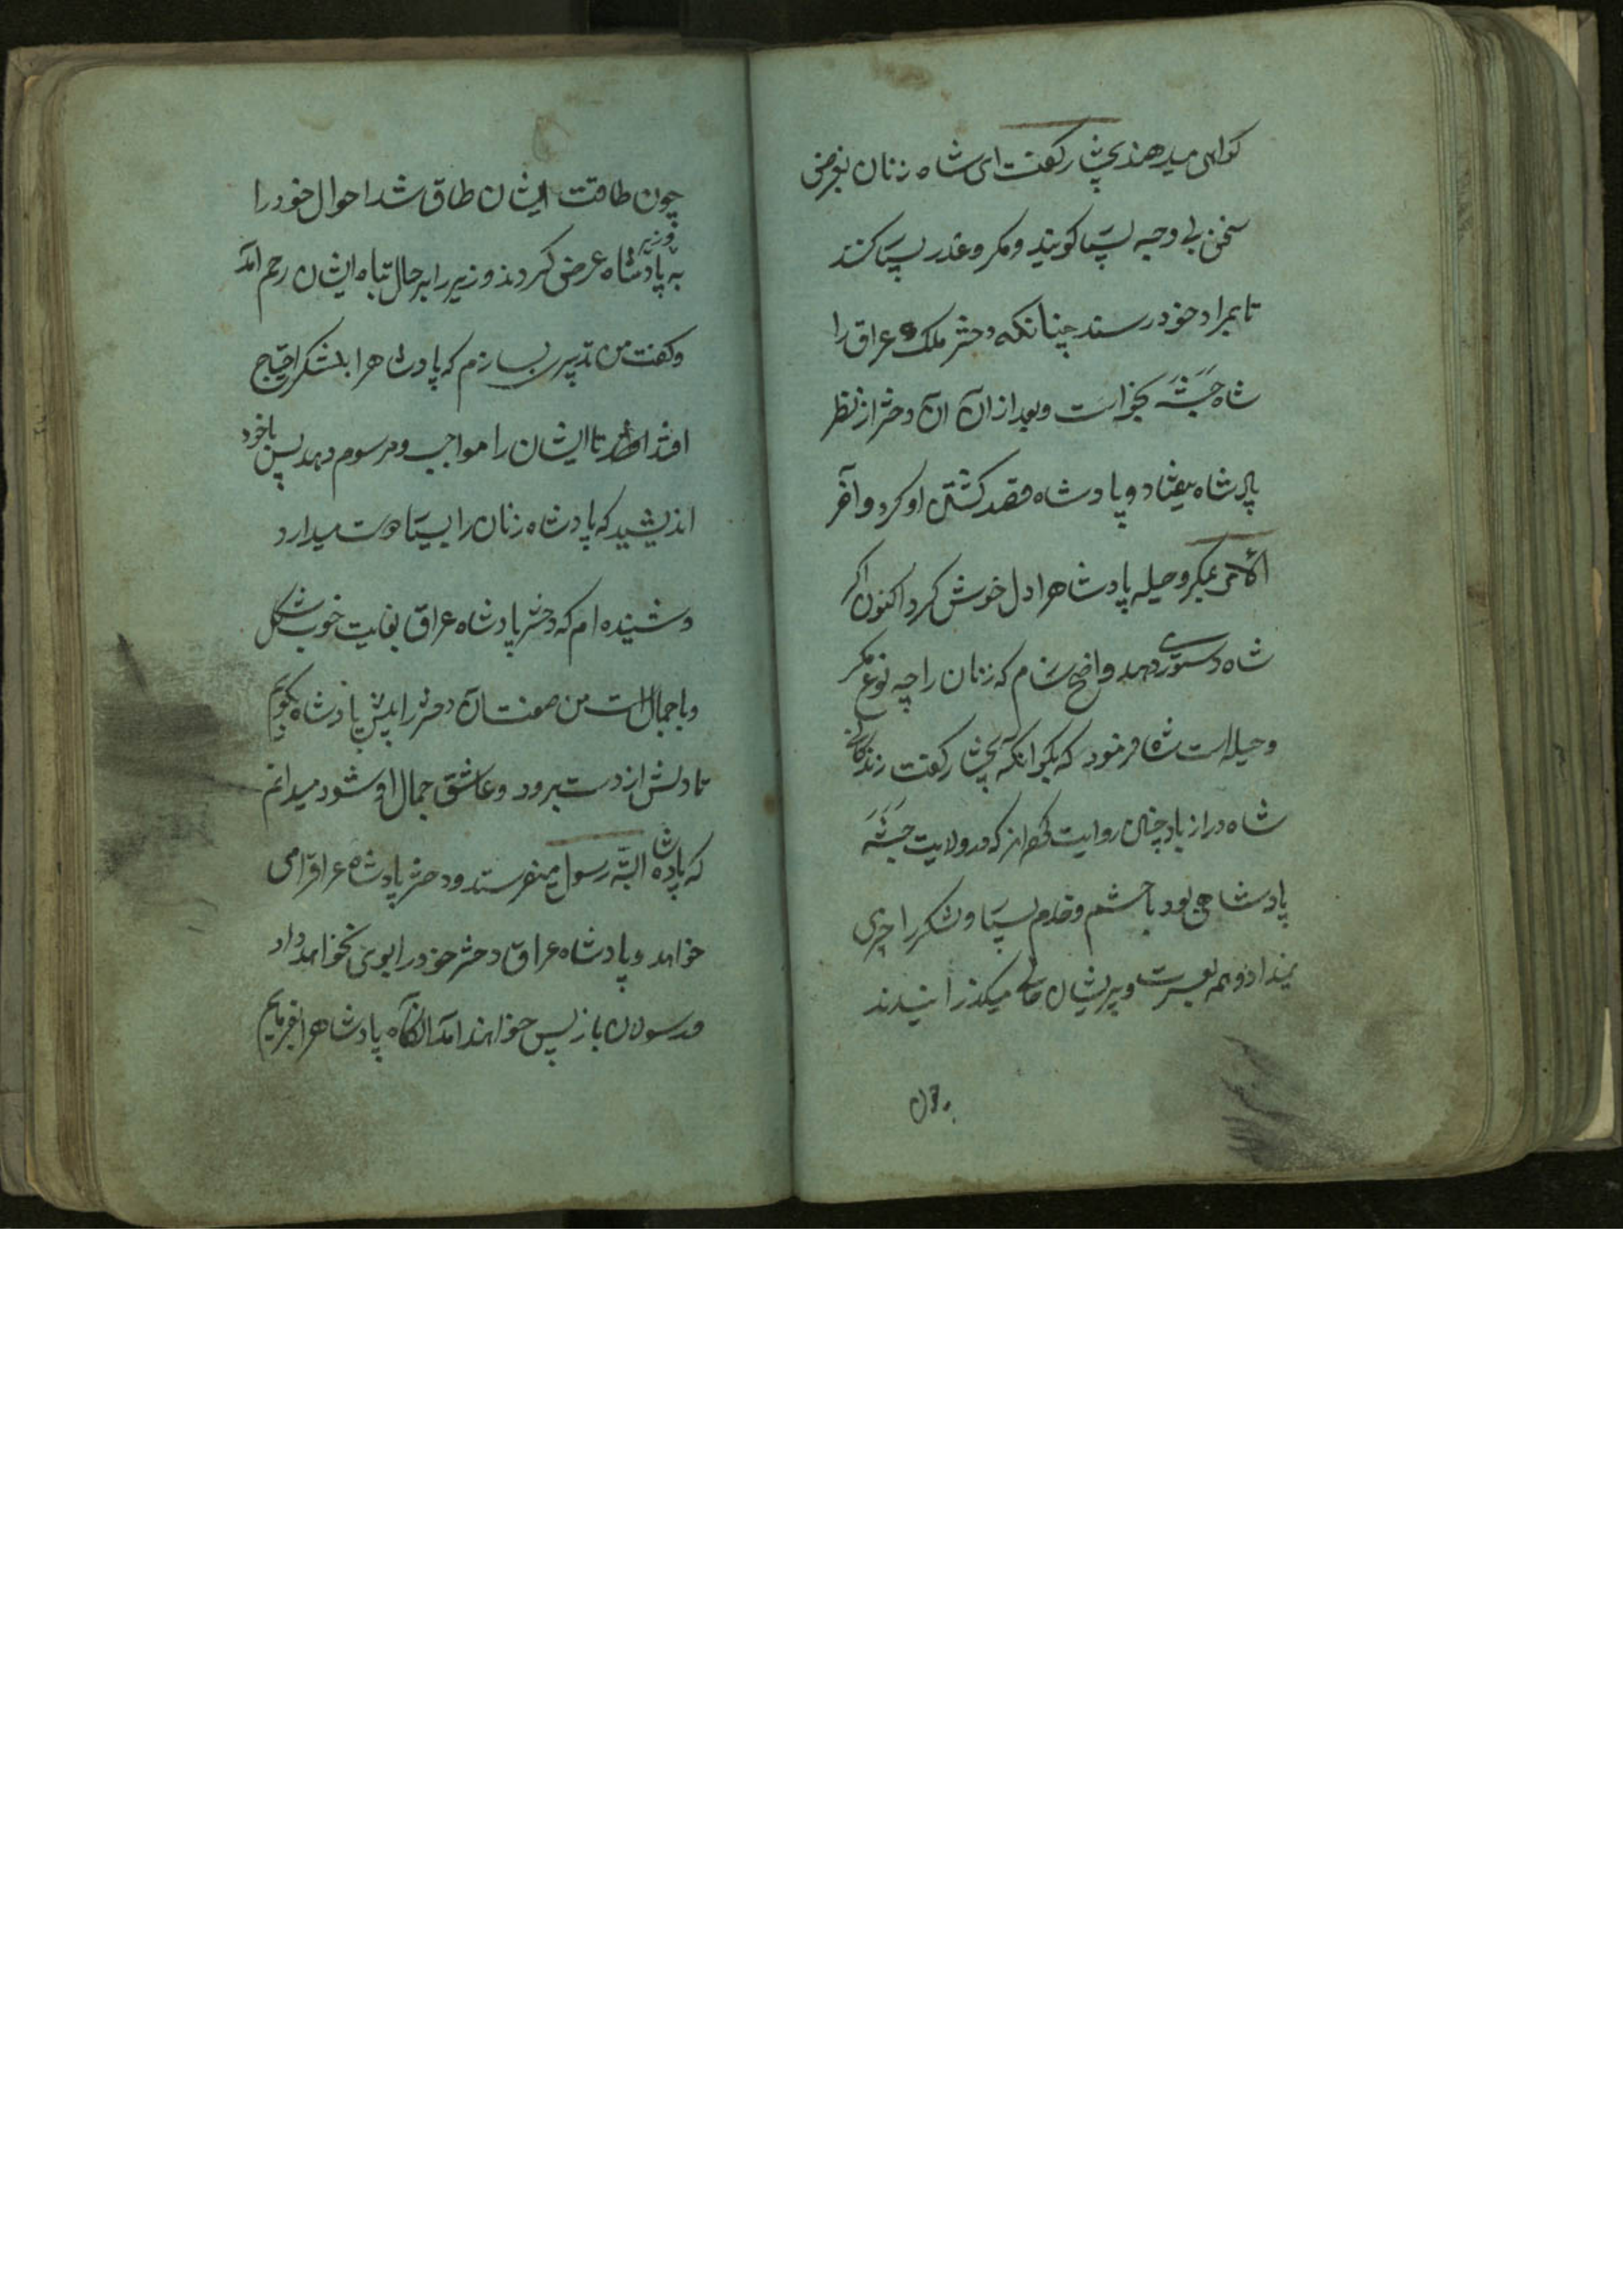 کواهی میدهند بختیار کفت ای شاه زنان بغرض
سخن بی وجه بسیار کویند و مکر و غدر بسیار کنند
تا بمراد خود رسند چنانکه دختر ملک عراق را
شاه حبشه بخواست و بعد از ان آن دختر از نظر
پادشاه بیفتاد و پادشاه قصد کشتن او کرد و آخر
الامر بمکر و حیله پادشاه را دل خوش کرد اکنون اکر
شاه دستوری دهد واضح سازم که زنان را چه نوع مکر
و حیله است شاه فرمود که بکو انکه بختیار کفت زندکانی
شاه دراز باد چنان روایت کرده‌اند که در ولایت حبشه
پادشاهی بود با حشم و خدم بسیار و لشکر را چیزی
نمیداد و همه بعسرت و پریشان حالی میکذرانیدند
چون
چون طاقت ایشان طاق شد احوال خود را
وزیر
به پادشاه عرض کردند وزیر را بر حال تباه ایشان رحم آمد
و کفت من تدبیری بسازم که پادشاه را بلشکر احتیاج
افتد تا ایشان را مواجب و مرسوم دهد پس باخود
اندیشید که پادشاه زنان را بسیار دوست میدارد
و شنیده ام که دختر پادشاه عراق بغایت خوب شکل
و باجمال است من صفت آن دختر را پیش پادشاه بکویم
تا دلش از دست برود و عاشق جمال او شود میدانم
که پادشاه البته رسول میفرستد و دختر پادشاه عراقرا می
خواهد و پادشاه عراق دختر خود را بوی نخواهد داد
و رسولان باز پس خواهند آمد آنکاه پادشاه را بفرمایم